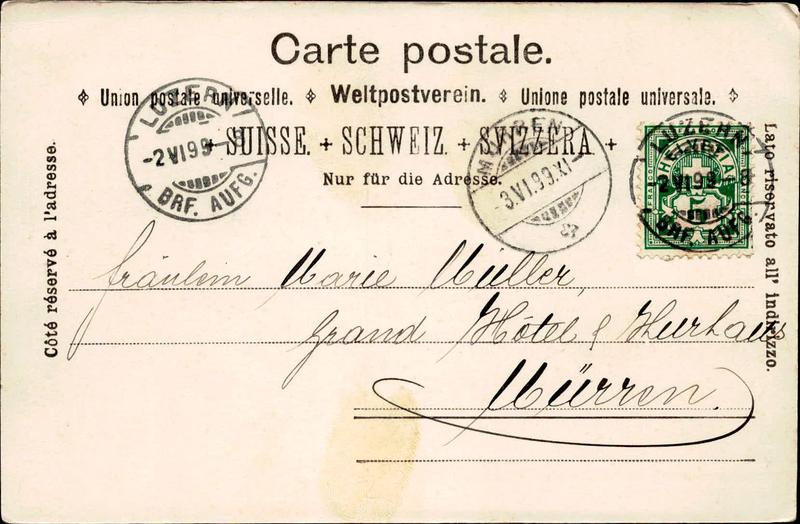 Carte postale.
Union postale universelle. Weltpostverein. Unione postale universale.
+ SUISSE. + SCHWEIZ. + SVIZZERA. +
Nur für die Adresse.
LUZERN
-2 VI 99
BRF. AUFG.
MÜRREN
3.VI.99.XI
LUZERN
-2 VI 99 -8
BRF. AUFG.
HELVETIA
Côté réservé à l'adresse.
Lato riservato all' indirizzo.
Fräulein Marie Müller,
Grand Hôtel & Kurhaus
Mürren.